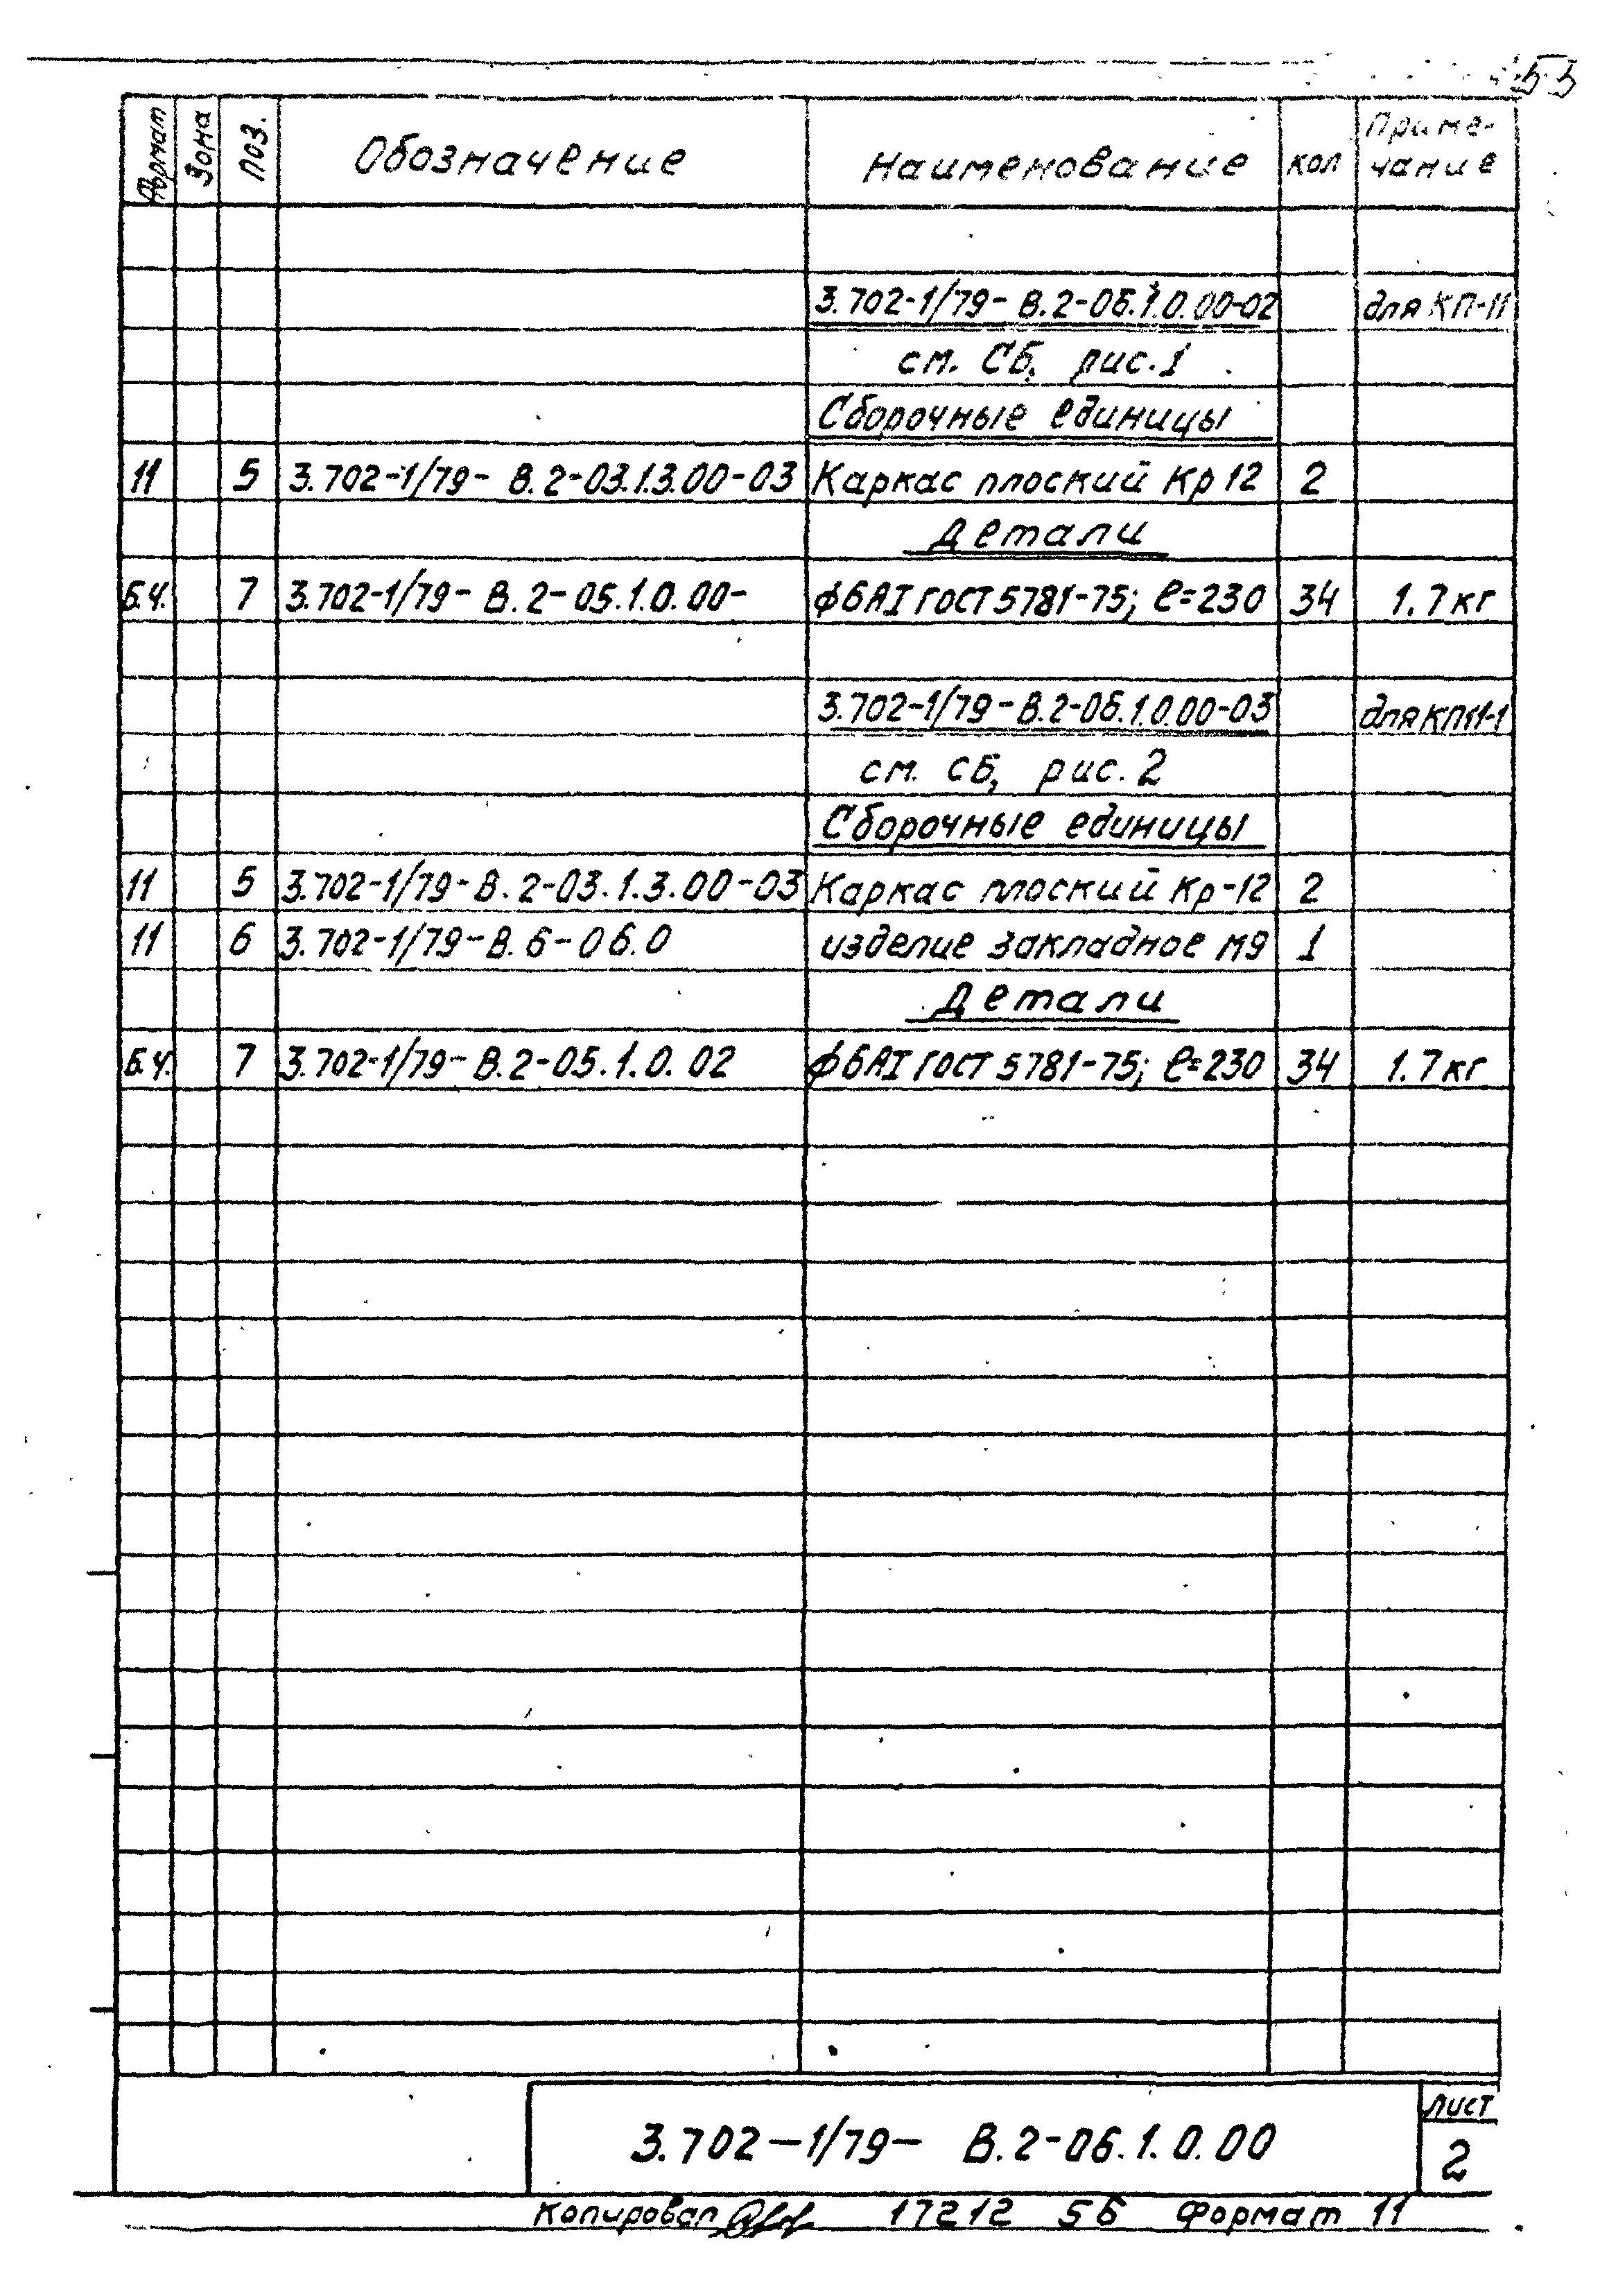 55
Формат Зона Поз. Обозначение Наименование кол Приме-
чание
3.702-1/79- В.2-06.1.0.00-02 для КП-11
см. СБ, рис.1
Сборочные единицы
11 5 3.702-1/79- В.2-03.1.3.00-03 Каркас плоский Кр 12 2
Детали
Б.Ч. 7 3.702-1/79- В.2-05.1.0.00- ф6АI ГОСТ 5781-75; ℓ=230 34 1.7 кг
3.702-1/79-В.2-06.1.0.00-03 для КП11-1
см. СБ, рис. 2
Сборочные единицы
11 5 3.702-1/79-В.2-03.1.3.00-03 Каркас плоский Кр-12 2
11 6 3.702-1/79-В.6-06.0 изделие закладное М9 1
Детали
Б.Ч. 7 3.702-1/79-В.2-05.1.0.02 ф6АI ГОСТ 5781-75; ℓ=230 34 1.7 кг
3.702-1/79- В.2-06.1.0.00
Лист
2
Копировал 17212 56 Формат 11